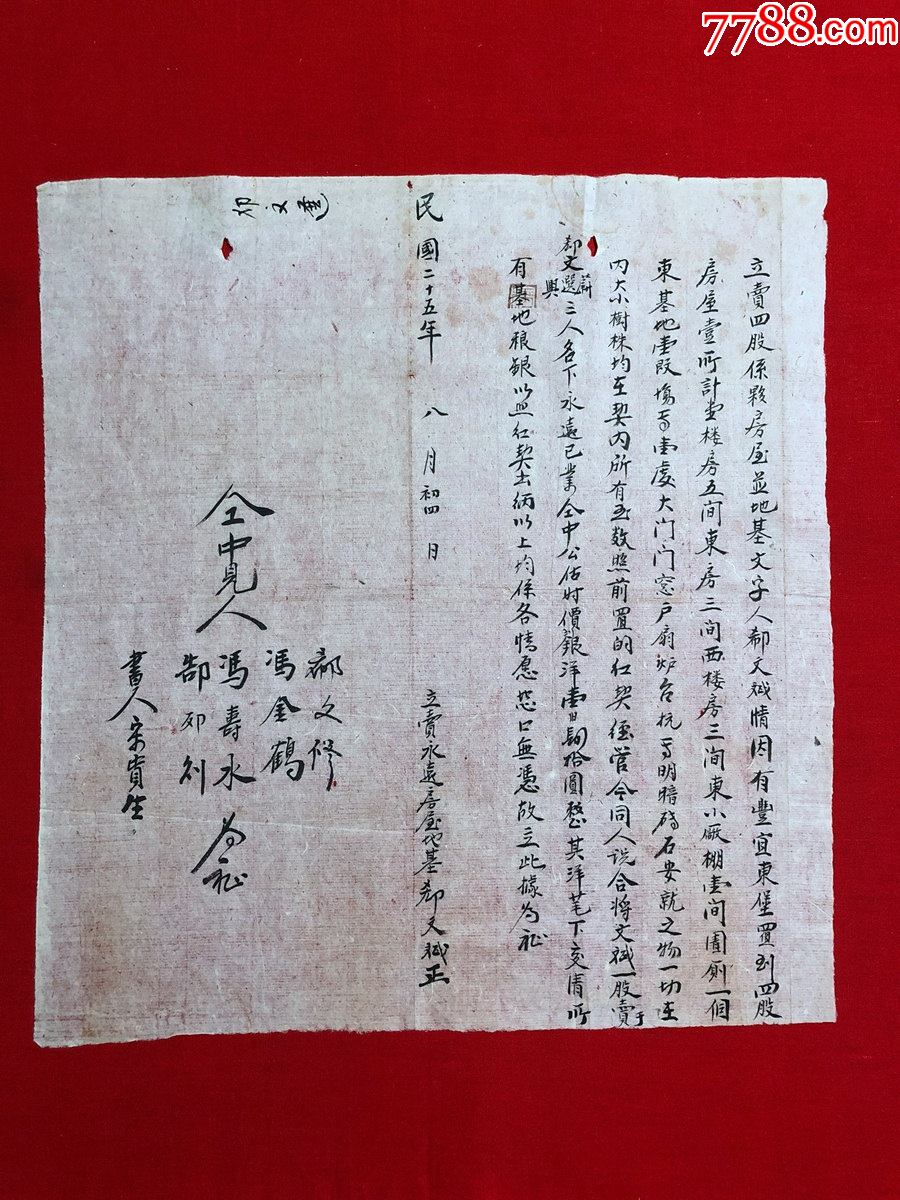 7788.com
立賣四股係夥房屋並地基文字人郝文斌情因有豐宜東堡置到四股
房屋壹所計堂楼房五间東房三间西楼房三间東小廠棚壹间圊厕一個
東基地壹段塲壹處大门门窓户扇炉台炕明暗磚石安就之物一切在
内大小樹株均在契内所有至数照前置的红契経营今同人说合將文斌一股賣于
郝文選興三人名下永遠已業仝中公估时價銀洋壹百肆拾圓整其洋笔下交清所
有基地粮銀以照红契出纳以上均係各情愿恐口無憑故立此據為証
民國二十五年 八月初四日
立賣永遠房屋地基郝文斌正
仝中見人
郝文修
馮金鶴
馮壽永
為証
書人宋貴生